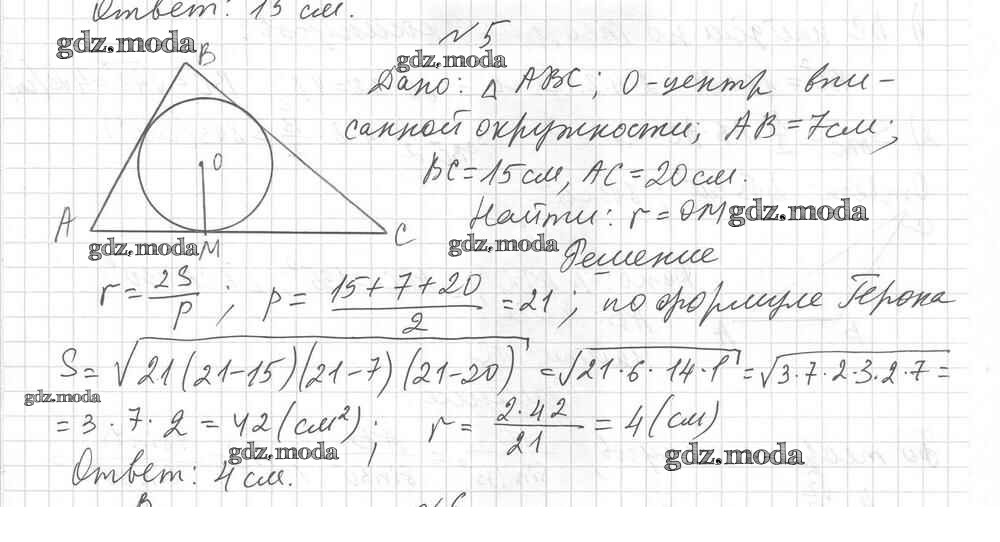 Ответ: 15 см.
№5
gdz.moda
gdz.moda
B
Дано: △ ABC; O-центр впи-
санной окружности; AB=7см;
BC=15см, AC=20см.
O
Найти: r=OM
gdz.moda
A
C
gdz.moda
M
gdz.moda
Решение
r=2S/P; p=(15+7+20)/2=21; по формуле Герона
S=√(21(21-15)(21-7)(21-20))=√(21·6·14·1)=√(3·7·2·3·2·7)=
gdz.moda
=3·7·2=42(см²); r=(2·42)/21=4(см)
gdz.moda
gdz.moda
Ответ: 4 см.
B